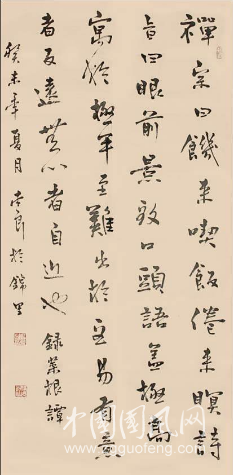 禪宗曰饑來喫飯倦來瞑詩
旨曰眼前景致口頭語蓋極高
寓於極平至難出於至易有意
者反遠無心者自近也 錄菜根譚
癸未年夏月 於錦里
中国国风网
guofeng.com